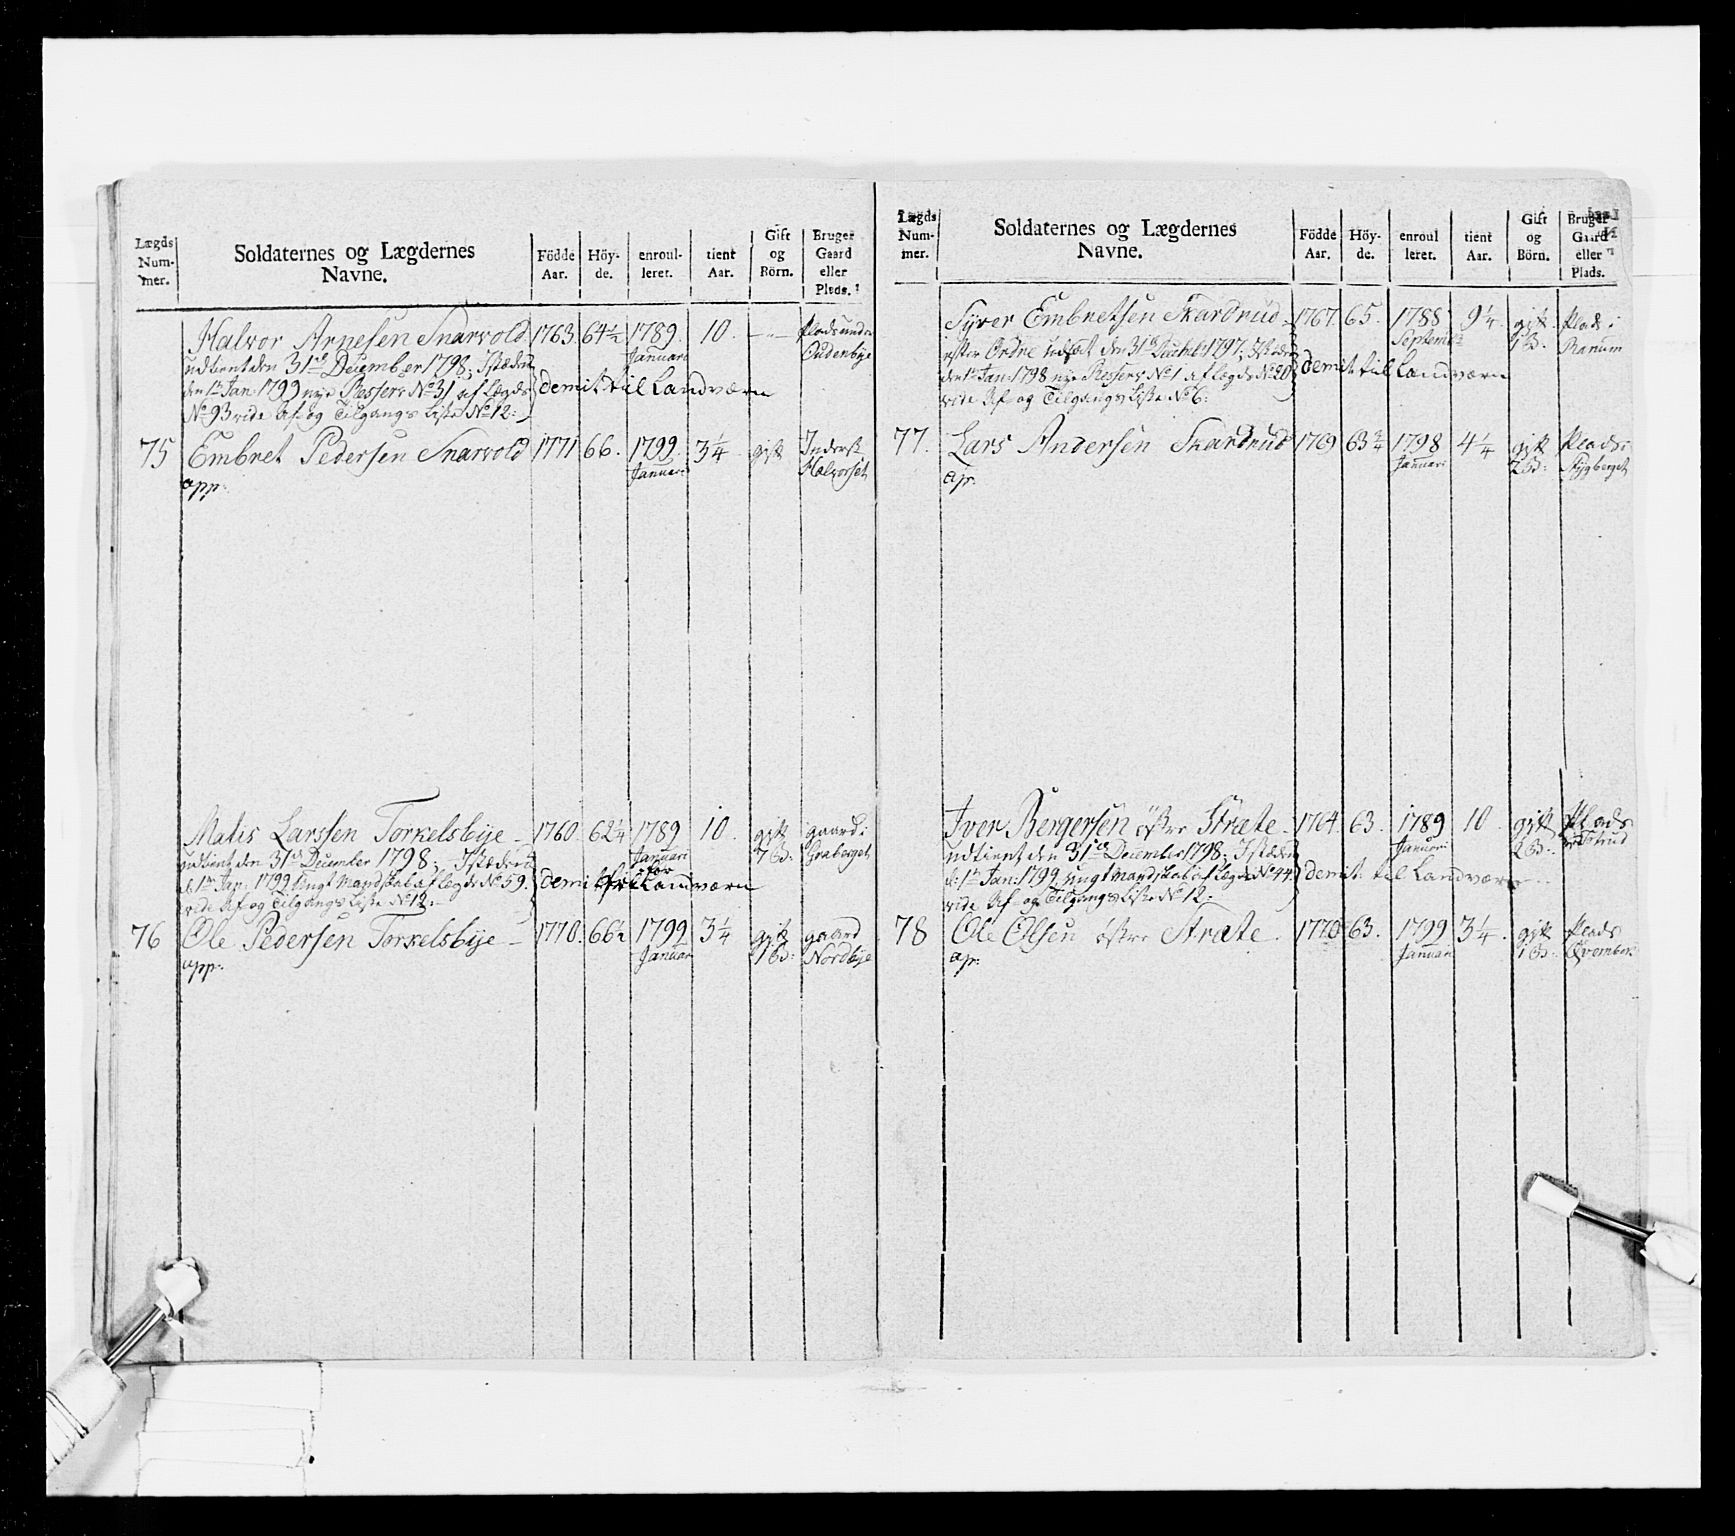 Lægds Num- mer.
Soldaternes og Lægdernes Navne.
Födde Aar.
Höy- de.
enroul- leret.
tient Aar.
Gift og Börn.
Bruger Gaard eller Plads.
Halvor Arnesen Snarvold 1763. 64½ 1789. 10. — Plads under
udtient den 31te December 1798; Istæden Januari Oudenbye
den 1te Jan: 1799 nye Ressers No 31 af Lægds demit til Landværn
No 93 vide Af og Tilgangs Liste No 12:
75 Embret Pedersen Snarvold 1771 66. 1799. 3¼ gift Inderst
app: Januari Halvorset
Matis Larssen Torkelsbye 1760 62¼ 1789 10. gift gaard:
udtient den 31te December 1798; Istæden Januari 7 B: Graberget
d: 1te Jan: 1799 ungt Mandskab af Legds No 59. demit til Landværn
vide Af og Tilgangs Liste No 12:
76 Ole Pedersen Torkelsbye 1770. 66½ 1799 3¼ gift gaard
app: Januar 1 B: Nordbye
Lægds Num- mer.
Soldaternes og Lægdernes Navne.
Födde Aar.
Höy- de.
enroul leret.
tient Aar.
Gift og Börn.
Bruger Gaard eller Plads.
Syver Embretsen Skardrud 1767. 65. 1788 9¼ gift Plads i
efter Ordre udsat den 31te Decembr 1797; Istæden Septemb
den 1te Jan: 1798 nye Ressers No 1 af Legds No 20 demit til Landværn
vide Af og Tilgangs Liste No 6:
77. Lars Andersen Skardrud 1769 63¾ 1798 4¼ gift Plads:
ap: Januari 2 B: Stygberget
Iver Bergersen östre Stræte 1764 63. 1789 10 gift Plads
udtient den 31te December 1798; Istæden Januari 2 B:
d: 1te Jan: 1799 ungt Mandskab af Legds No 44. demit til Landværn
vide Af og Tilgangs Liste No 12:
78 Ole Olsen östre Stræte 1770 63. 1799 3¼ gift Plads
ap: Januari 1 B: